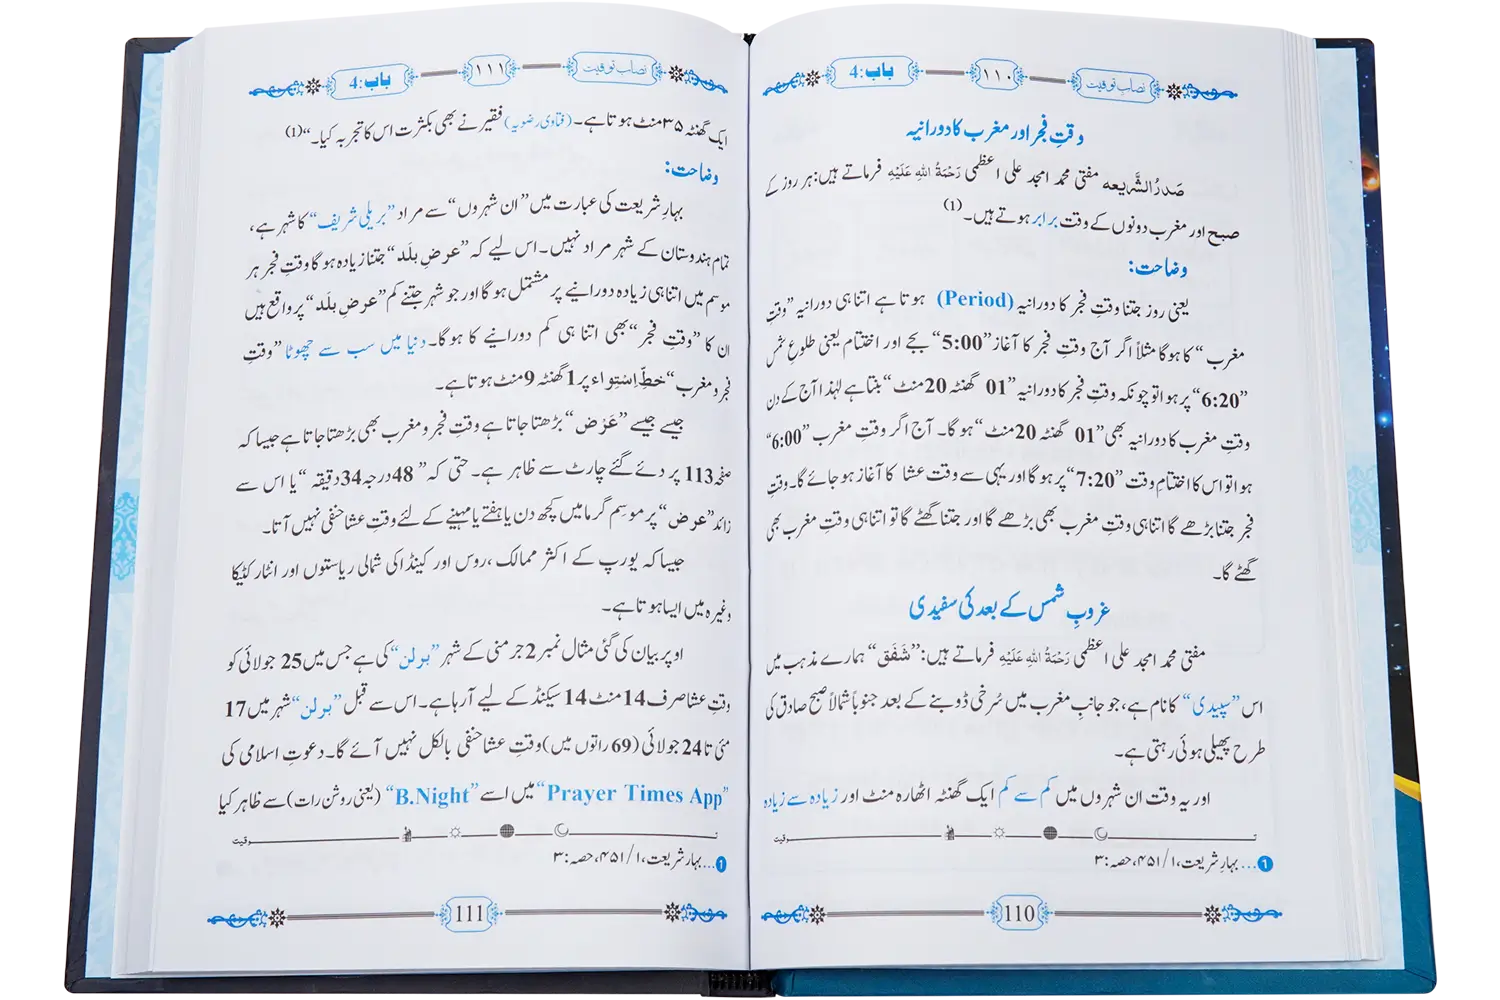 نصاب توقیت ۱۱۰ باب:4
وقتِ فجر اور مغرب کا دورانیہ
صَدرُ الشَّریعہ مفتی محمد امجد علی اعظمی رَحْمَۃُ اللہِ عَلَیْہِ فرماتے ہیں: ہر روز کے
صبح اور مغرب دونوں کے وقت برابر ہوتے ہیں۔(1)
وضاحت:
یعنی روز جتنا وقتِ فجر کا دورانیہ (Period) ہوتا ہے اتنا ہی دورانیہ ”وقتِ
مغرب“ کا ہوگا مثلاً اگر آج وقتِ فجر کا آغاز ”5:00“ بجے اور اختتام یعنی طلوعِ شمس
”6:20“ پر ہوا تو چونکہ وقتِ فجر کا دورانیہ ”01 گھنٹہ 20 منٹ“ بنتا ہے لہٰذا آج کے دن
وقتِ مغرب کا دورانیہ بھی ”01 گھنٹہ 20 منٹ“ ہوگا۔ آج اگر وقتِ مغرب ”6:00“
ہوا تو اس کا اختتامِ وقت ”7:20“ پر ہوگا اور یہی سے وقت عشا کا آغاز ہو جائے گا۔ وقتِ
فجر جتنا بڑھے گا اتنا ہی وقتِ مغرب بھی بڑھے گا اور جتنا گھٹے گا تو اتنا ہی وقتِ مغرب بھی
گھٹے گا۔
غروبِ شمس کے بعد کی سفیدی
مفتی محمد امجد علی اعظمی رَحْمَۃُ اللہِ عَلَیْہِ فرماتے ہیں: ”شَفَق“ ہمارے مذہب میں
اس ”سپیدی“ کا نام ہے، جو جانبِ مغرب میں سُرخی ڈوبنے کے بعد جنوباً شمالاً صبح صادق کی
طرح پھیلی ہوئی رہتی ہے۔
اور یہ وقت ان شہروں میں کم سے کم ایک گھنٹہ اٹھارہ منٹ اور زیادہ سے زیادہ
1 ... بہارِ شریعت، ۱/۴۵۱، حصہ:۳
110
نصاب توقیت ۱۱۱ باب:4
ایک گھنٹہ ۳۵ منٹ ہوتا ہے۔ (فتاوی رضویہ) فقیر نے بھی بکثرت اس کا تجربہ کیا۔“(1)
وضاحت:
بہارِ شریعت کی عبارت میں ”ان شہروں“ سے مراد ”بریلی شریف“ کا شہر ہے،
تمام ہندوستان کے شہر مراد نہیں۔ اس لیے کہ ”عرضِ بلَد“ جتنا زیادہ ہوگا وقتِ فجر ہر
موسم میں اتنا ہی زیادہ دورانیے پر مشتمل ہوگا اور جو شہر جتنے کم ”عرضِ بلَد“ پر واقع ہیں
ان کا ”وقتِ فجر“ بھی اتنا ہی کم دورانیے کا ہوگا۔ دنیا میں سب سے چھوٹا ”وقتِ
فجر و مغرب“ خطِّ اِسْتِواء پر 1 گھنٹہ 9 منٹ ہوتا ہے۔
جیسے جیسے ”عَرْض“ بڑھتا جاتا ہے وقتِ فجر و مغرب بھی بڑھتا جاتا ہے جیسا کہ
صفحہ 113 پر دئے گئے چارٹ سے ظاہر ہے۔ حتی کہ ”48 درجہ 34 دقیقہ“ یا اس سے
زائد ”عرض“ پر موسِمِ گرما میں کچھ دن یا ہفتے یا مہینے کے لئے وقتِ عشا حنفی نہیں آتا۔
جیسا کہ یورپ کے اکثر ممالک، روس اور کینڈا کی شمالی ریاستوں اور انٹارکٹیکا
وغیرہ میں ایسا ہوتا ہے۔
اوپر بیان کی گئی مثال نمبر 2 جرمنی کے شہر ”برلن“ کی ہے جس میں 25 جولائی کو
وقتِ عشا صرف 14 منٹ 14 سیکنڈ کے لیے آ رہا ہے۔ اس سے قبل ”برلن“ شہر میں 17
مئی تا 24 جولائی (69 راتوں میں) وقتِ عشا حنفی بالکل نہیں آئے گا۔ دعوتِ اسلامی کی
”Prayer Times App“ میں اسے ”B.Night“ (یعنی روشن رات) سے ظاہر کیا
1 ... بہارِ شریعت، ۱/۴۵۱، حصہ:۳
111